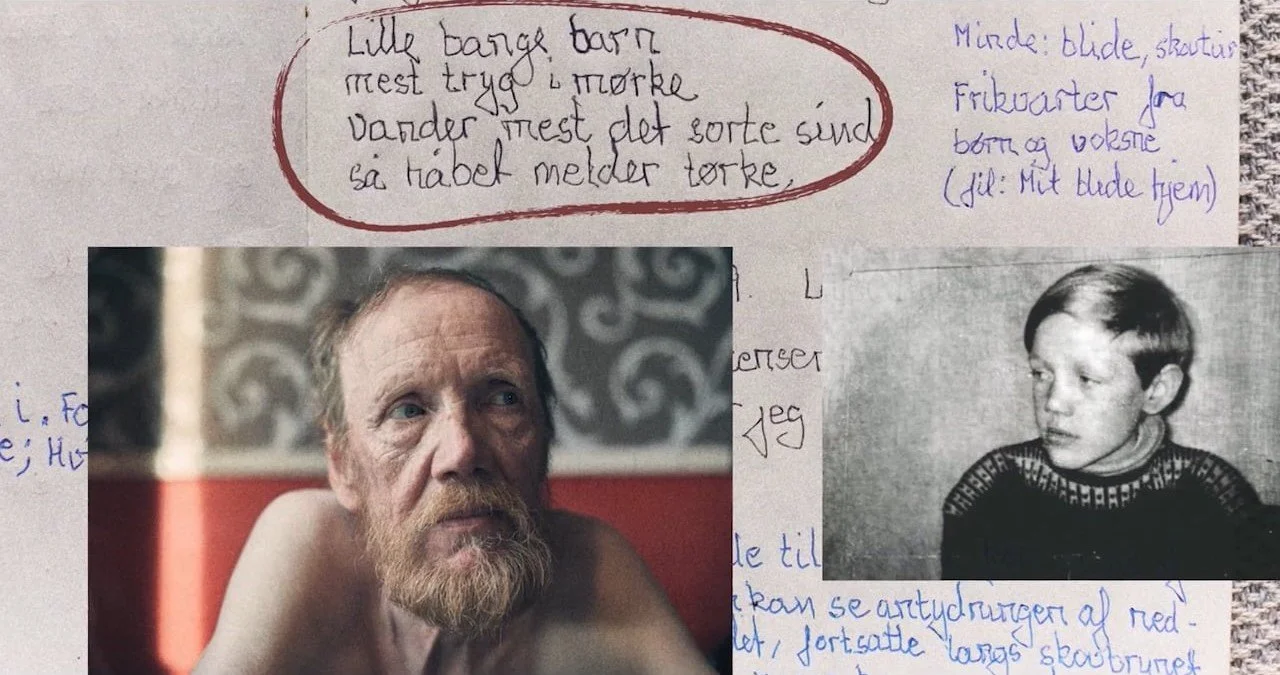 Lille bange barn
mest tryg i mørke
vander mest det sorte sind
så håbet melder tørke,
Minde: blide, skovtur
Frikvarter fra
børn og voksne
(fil: Mit blide hjem)
i. Fo
e; Hv
9. L
enser
jeg
de til
kan se antydningen af ned-
det, fortsatte langs skovbrynet